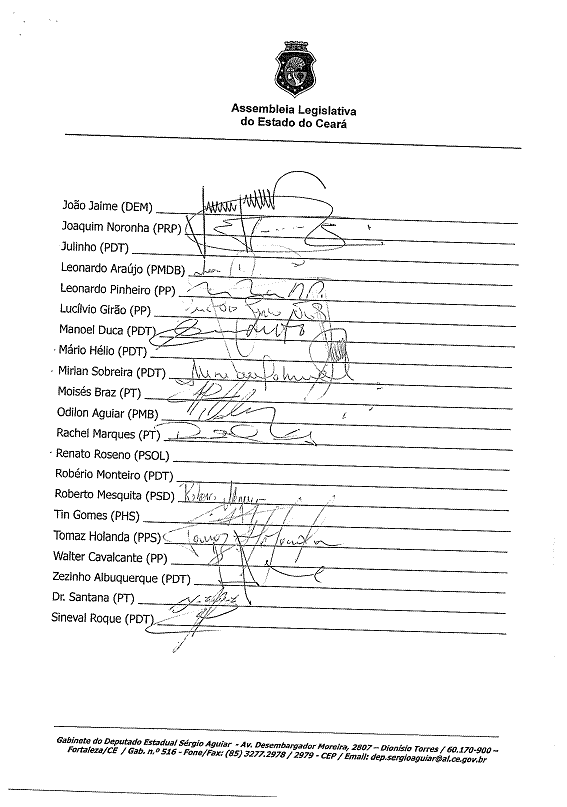 Assembleia Legislativa
do Estado do Ceará
João Jaime (DEM)
Joaquim Noronha (PRP)
Julinho (PDT)
Leonardo Araújo (PMDB)
Leonardo Pinheiro (PP)
Lucílvio Girão (PP)
Manoel Duca (PDT)
Mário Hélio (PDT)
Mirian Sobreira (PDT)
Moisés Braz (PT)
Odilon Aguiar (PMB)
Rachel Marques (PT)
Renato Roseno (PSOL)
Robério Monteiro (PDT)
Roberto Mesquita (PSD)
Tin Gomes (PHS)
Tomaz Holanda (PPS)
Walter Cavalcante (PP)
Zezinho Albuquerque (PDT)
Dr. Santana (PT)
Sineval Roque (PDT)
Gabinete do Deputado Estadual Sérgio Aguiar - Av. Desembargador Moreira, 2807 – Dionísio Torres / 60.170-900 –
Fortaleza/CE / Gab. n.º 516 - Fone/Fax: (85) 3277.2978 / 2979 - CEP / Email: dep.sergioaguiar@al.ce.gov.br